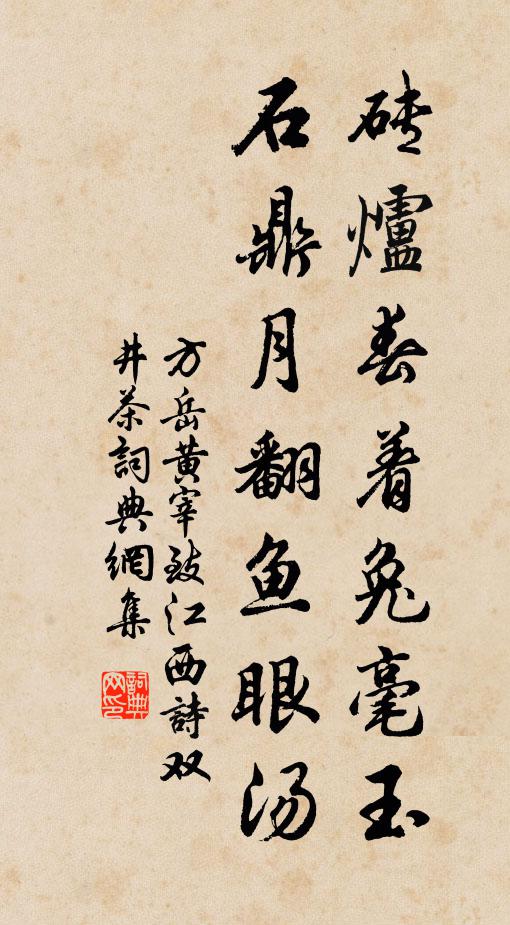 砖爐春着兔毫玉
石鼎月翻鱼眼汤
方岳黄宰致江西詩双
井茶詞典網集
詞典網印